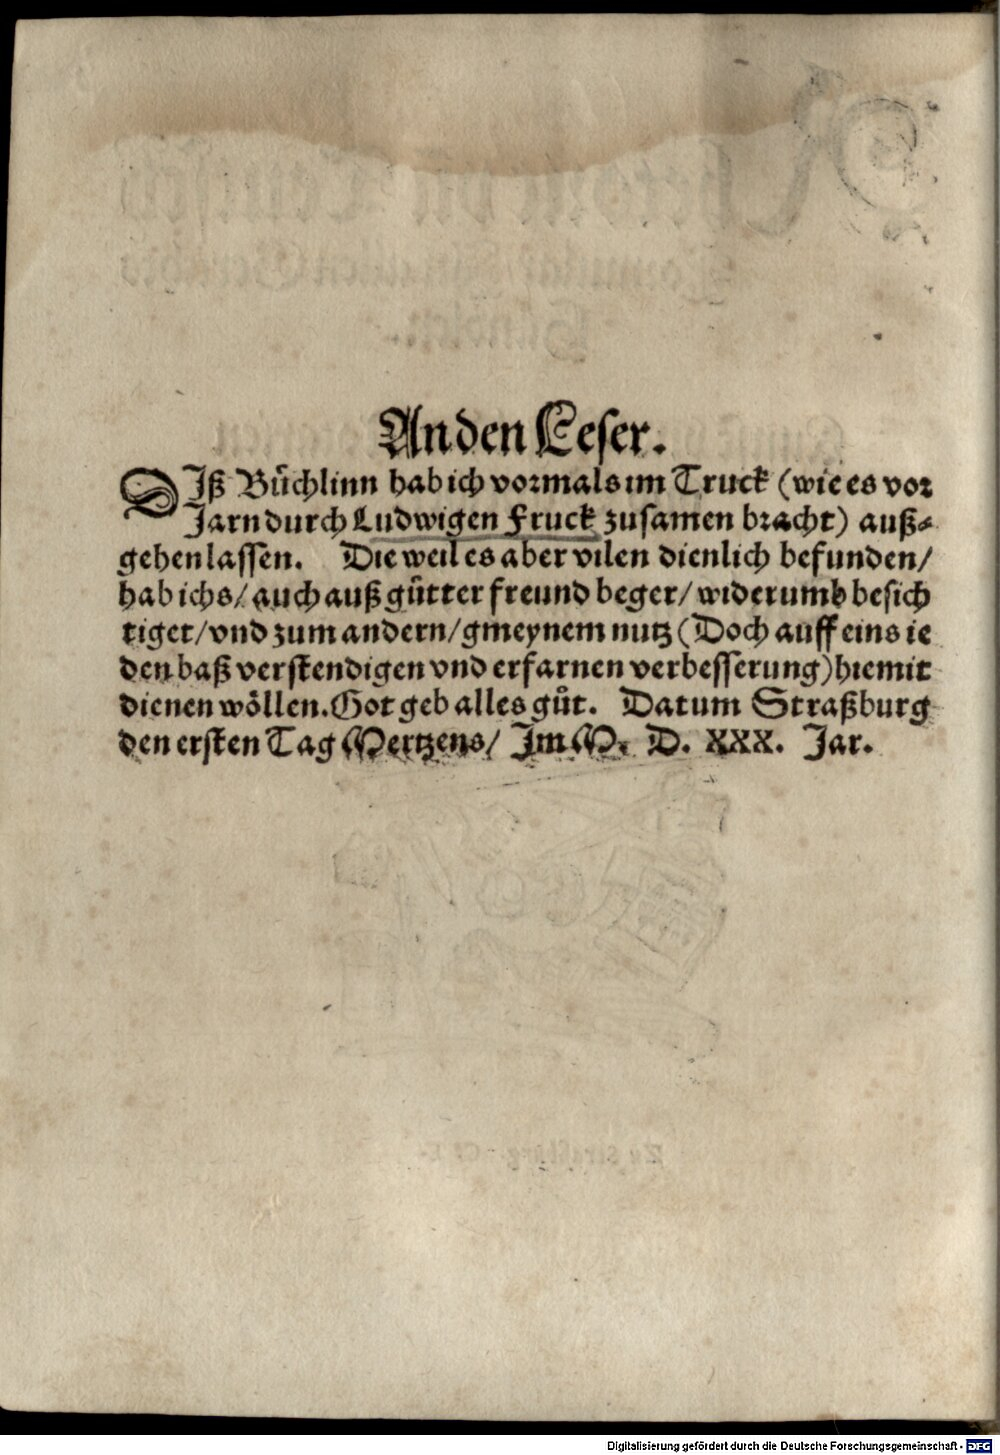 An den Leser.
DIß Bůchlinn hab ich vormals im Truck (wie es vor
Jarn durch Ludwigen Fruck zusamen bracht) auß⸗
gehen lassen. Die weil es aber vilen dienlich befunden/
hab ichs/ auch auß gůtter freund beger/ widerumb besich
tiget/ vnd zum andern/ gmeynem nutz (Doch auff eins ie
den baß verstendigen vnd erfarnen verbesserung) hiemit
dienen wöllen. Got geb alles gůt. Datum Straßburg
den ersten Tag Mertzens/ Im M. D. XXX. Jar.
Digitalisierung gefördert durch die Deutsche Forschungsgemeinschaft - DFG